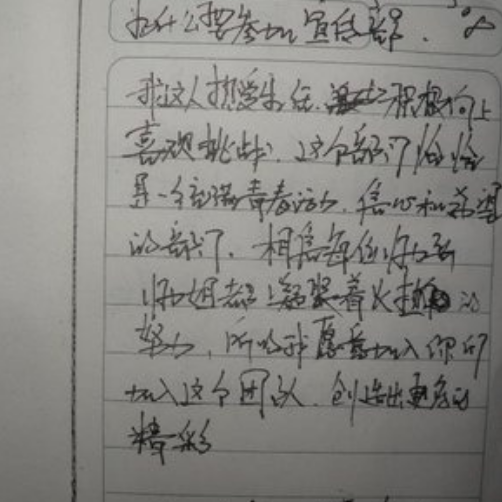 为什么要参加宣传部?
我这人热爱生活、积极向上
喜欢挑战,这个部门恰恰
是一个充满青春活力、信心和希望
的部门,相信每位
姐都凝聚着火热的
努力,所以我愿意加入你们
加入这个团队,创造出更多的
精彩